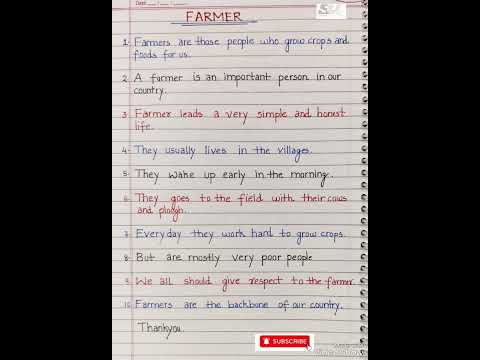 Date
FARMER
1. Farmers are those people who grow crops and
foods for us.
2. A farmer is an important person in our
country.
3. Farmer leads a very simple and honest
life.
4. They usually lives in the villages.
5. They wake up early in the morning.
6. They goes to the field with their cows
and plough.
7. Everyday they work hard to grow crops.
8. But are mostly very poor people
9. We all should give respect to the farmer.
10. Farmers are the backbone of our country.
Thankyou.
SUBSCRIBE